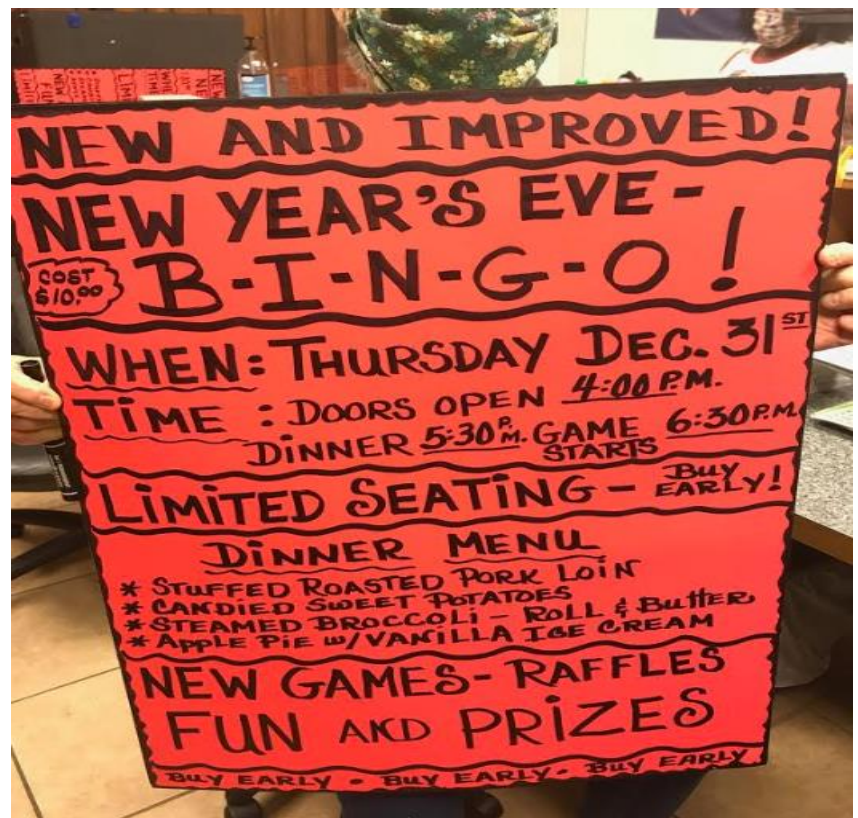 NEW AND IMPROVED!
NEW YEAR'S EVE-
COST
$10.00
B-I-N-G-O!
WHEN: THURSDAY DEC. 31ST
TIME : DOORS OPEN 4:00 P.M.
DINNER 5:30 P.M. GAME STARTS 6:30 P.M.
LIMITED SEATING - BUY EARLY!
DINNER MENU
* STUFFED ROASTED PORK LOIN
* CANDIED SWEET POTATOES
* STEAMED BROCCOLI - ROLL & BUTTER
* APPLE PIE W/VANILLA ICE CREAM
NEW GAMES - RAFFLES
FUN AND PRIZES
BUY EARLY • BUY EARLY • BUY EARLY